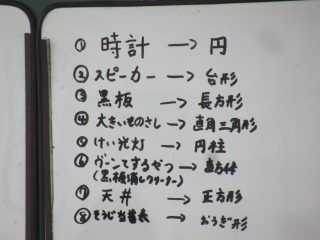 ① 時計 → 円
② スピーカー → 台形
③ 黒板 → 長方形
④ 大きいものさし → 直角三角形
⑤ けい光灯 → 円柱
⑥ ウーンてするやつ → 直方体
(黒板消しクリーナー)
⑦ 天井 → 正方形
⑧ そうじ当番表 → おうぎ形